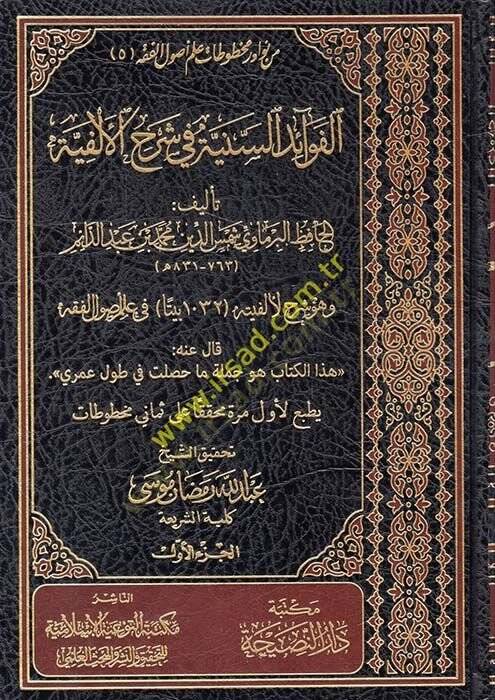 من نوادر مخطوطات علم أصول الفقه (٥)
الفوائد السنية في شرح الألفية
تأليف:
الحافظ البرماوي شمس الدين محمد بن عبد الدائم
(٧٦٣-٨٣١هـ)
وهو شرح لألفيته (١٠٣٢ بيتًا) في علم أصول الفقه
قال عنه:
«هذا الكتاب هو جملة ما حصلت في طول عمري».
يطبع لأول مرة محققا على ثماني مخطوطات
تحقيق الشيخ
عبد الله رمضان موسى
كلية الشريعة
الجزء الأول
مكتبة
دار النصيحة
الناشر
مكتبة التوعية الإسلامية
للتحقيق والنشر والبحث العلمي
www.irsad.com.tr